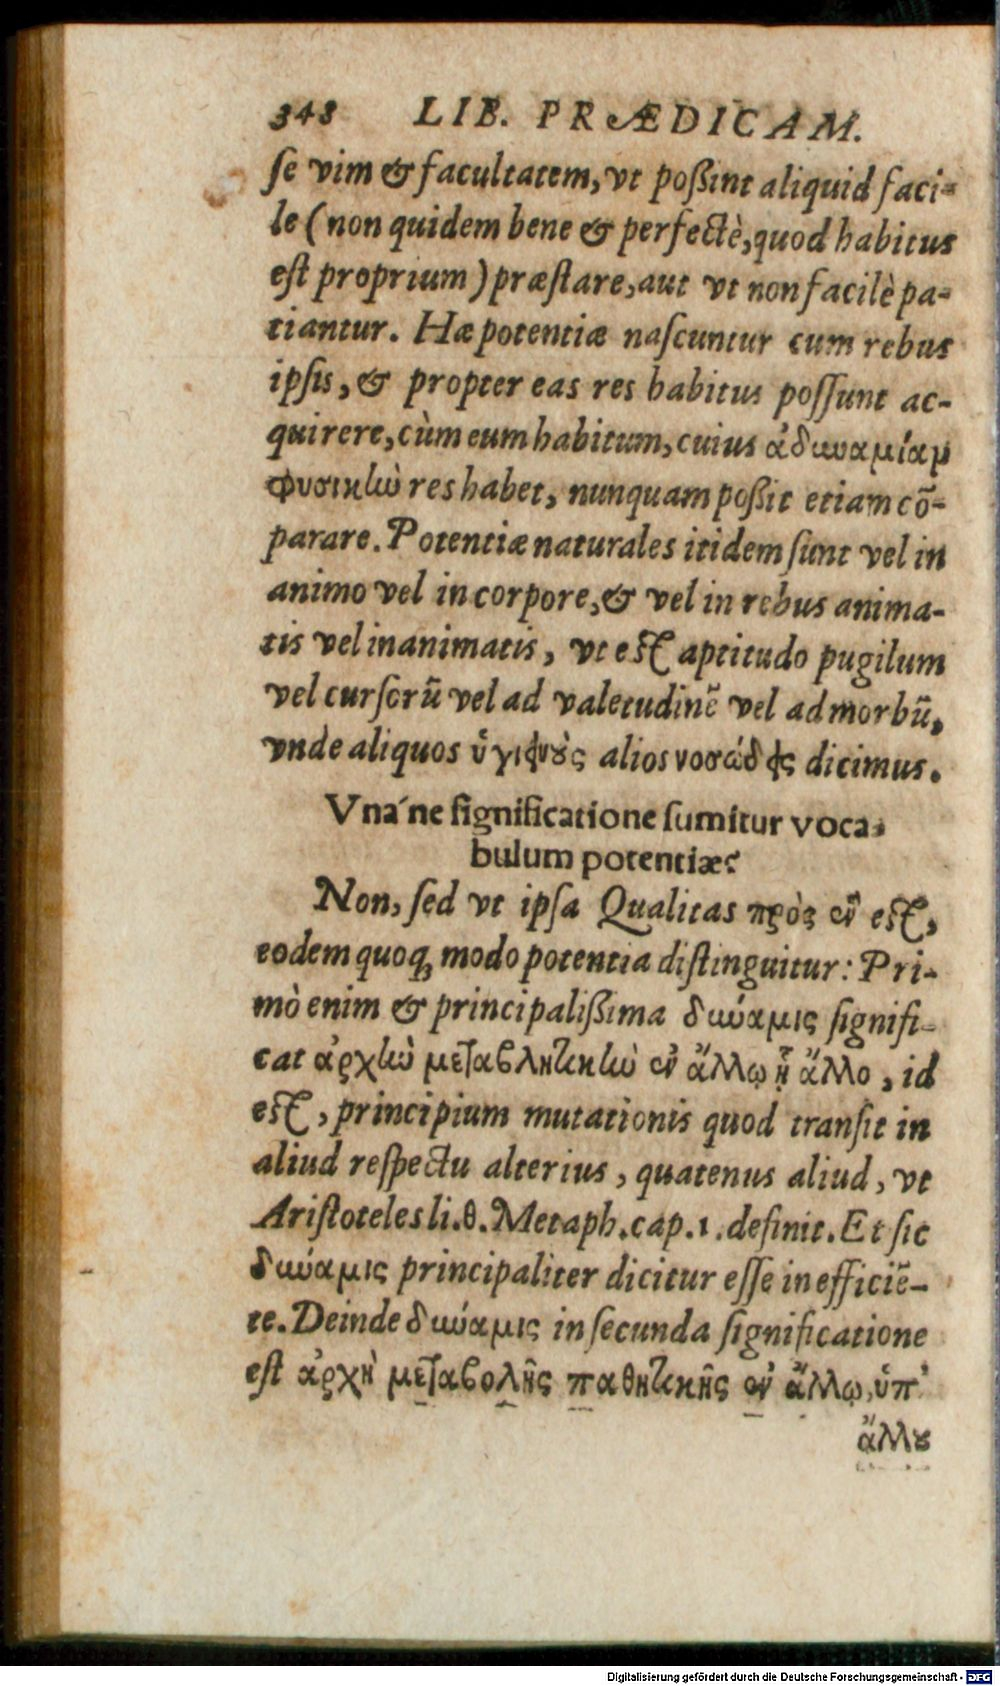 348 LIB. PRÆDICAM.
se vim & facultatem, vt poßint aliquid faci-
le (non quidem bene & perfectè, quod habitus
est proprium) præstare, aut vt non facilè pa-
tiantur. Hæ potentiæ nascuntur cum rebus
ipsis, & propter eas res habitus possunt ac-
quirere, cùm eum habitum, cuius ἀδυναμίαν
φυσικὴν res habet, nunquam poßit etiam cō-
parare. Potentiæ naturales itidem sunt vel in
animo vel in corpore, & vel in rebus anima-
tis vel inanimatis, vt est aptitudo pugilum
vel cursorū vel ad valetudinē vel ad morbū,
vnde aliquos ὑγιεινοὺς alios νοσώδεις dicimus.
Vna´ne significatione sumitur voca-
bulum potentiæ?
Non, sed vt ipsa Qualitas πρὸς ἓν est,
eodem quoq; modo potentia distinguitur: Pri-
mò enim & principalißima δύναμις signifi-
cat ἀρχὴν μεταβλητικὴν ἐν ἄλλῳ ᾗ ἄλλο, id
est, principium mutationis quod transit in
aliud respectu alterius, quatenus aliud, vt
Aristoteles li. θ. Metaph. cap. 1. definit. Et sic
δύναμις principaliter dicitur esse in efficiē-
te. Deinde δύναμις in secunda significatione
est ἀρχὴ μεταβολῆς παθητικῆς ἐν ἄλλῳ, ὑπ'
ἄλλου
Digitalisierung gefördert durch die Deutsche Forschungsgemeinschaft - DFG